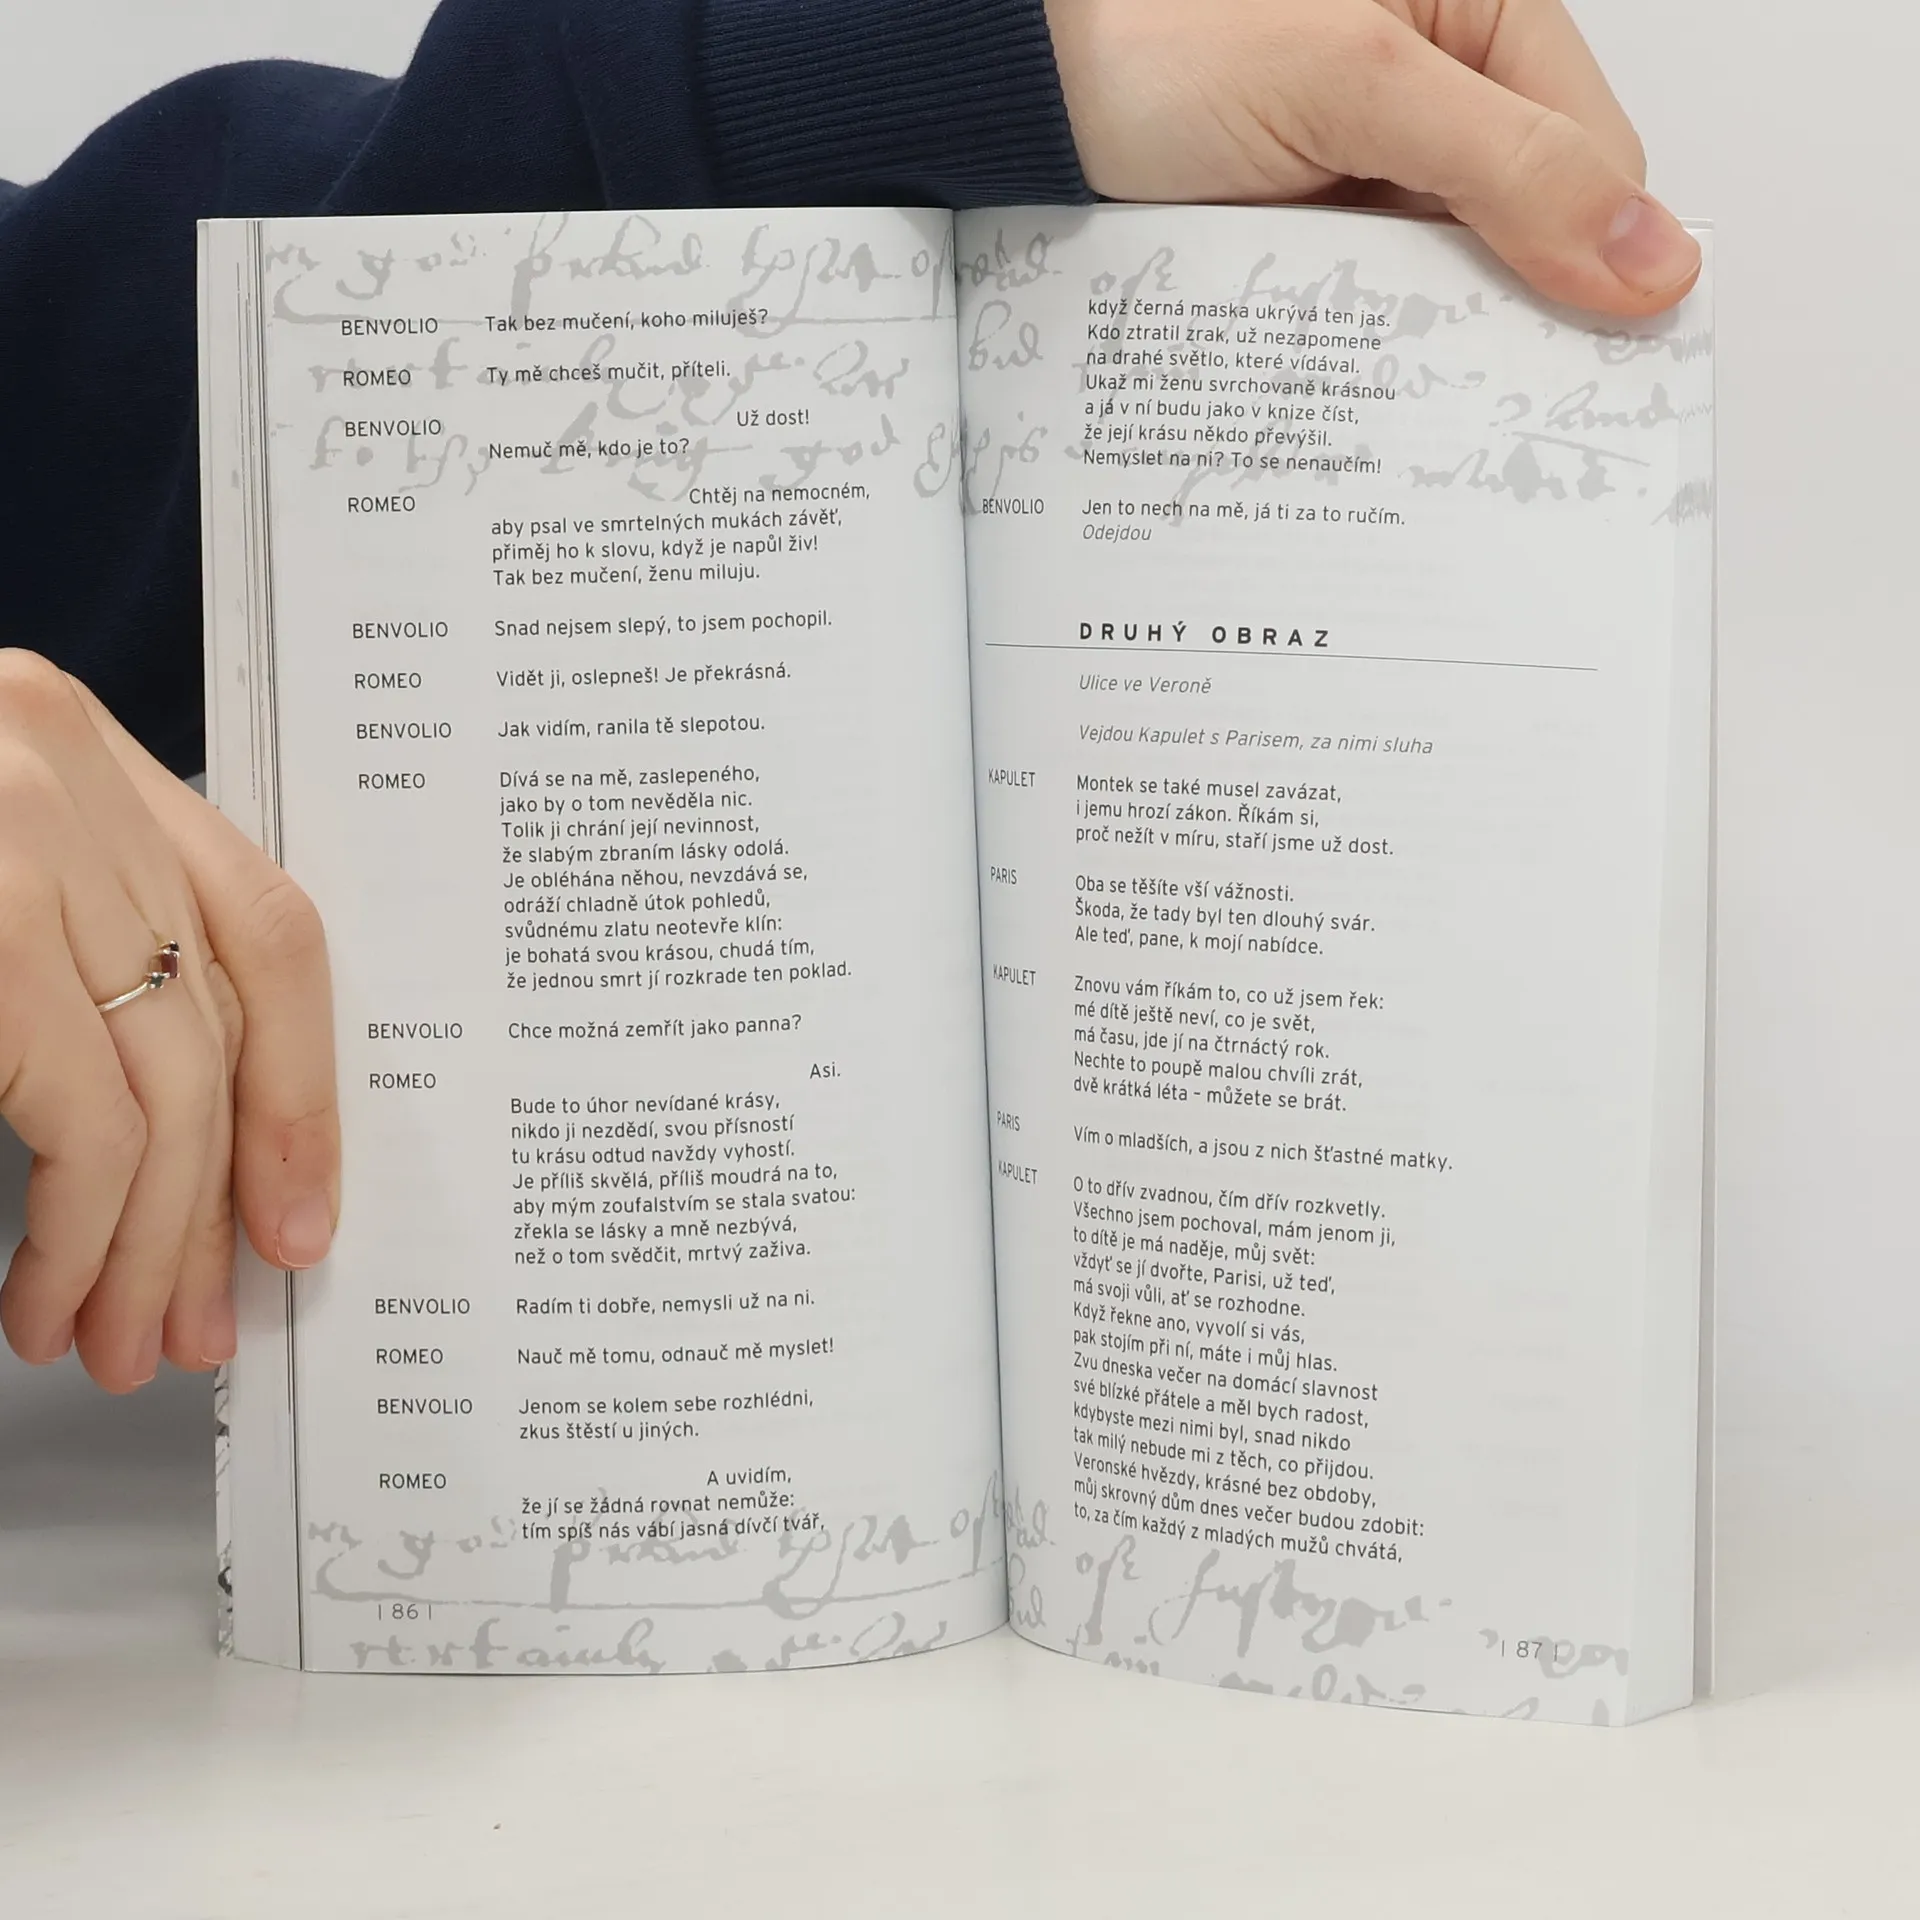 BENVOLIO Tak bez mučení, koho miluješ?
ROMEO Ty mě chceš mučit, příteli.
BENVOLIO Už dost!
Nemuč mě, kdo je to?
ROMEO Chtěj na nemocném,
aby psal ve smrtelných mukách závěť,
přiměj ho k slovu, když je napůl živ!
Tak bez mučení, ženu miluju.
BENVOLIO Snad nejsem slepý, to jsem pochopil.
ROMEO Vidět ji, oslepneš! Je překrásná.
BENVOLIO Jak vidím, ranila tě slepotou.
ROMEO Dívá se na mě, zaslepeného,
jako by o tom nevěděla nic.
Tolik ji chrání její nevinnost,
že slabým zbraním lásky odolá.
Je obléhána něhou, nevzdává se,
odráží chladně útok pohledů,
svůdnému zlatu neotevře klín:
je bohatá svou krásou, chudá tím,
že jednou smrt jí rozkrade ten poklad.
BENVOLIO Chce možná zemřít jako panna?
ROMEO Asi.
Bude to úhor nevídané krásy,
nikdo ji nezdědí, svou přísností
tu krásu odtud navždy vyhostí.
Je příliš skvělá, příliš moudrá na to,
aby mým zoufalstvím se stala svatou:
zřekla se lásky a mně nezbývá,
než o tom svědčit, mrtvý zaživa.
BENVOLIO Radím ti dobře, nemysli už na ni.
ROMEO Nauč mě tomu, odnauč mě myslet!
BENVOLIO Jenom se kolem sebe rozhlédni,
zkus štěstí u jiných.
ROMEO A uvidím,
že jí se žádná rovnat nemůže:
tím spíš nás vábí jasná dívčí tvář,
| 86 |
když černá maska ukrývá ten jas.
Kdo ztratil zrak, už nezapomene
na drahé světlo, které vídával.
Ukaž mi ženu svrchovaně krásnou
a já v ní budu jako v knize číst,
že její krásu někdo převýšil.
Nemyslet na ni? To se nenaučím!
BENVOLIO Jen to nech na mě, já ti za to ručím.
Odejdou
DRUHÝ OBRAZ
Ulice ve Veroně
Vejdou Kapulet s Parisem, za nimi sluha
KAPULET Montek se také musel zavázat,
i jemu hrozí zákon. Říkám si,
proč nežít v míru, staří jsme už dost.
PARIS Oba se těšíte vší vážnosti.
Škoda, že tady byl ten dlouhý svár.
Ale teď, pane, k mojí nabídce.
KAPULET Znovu vám říkám to, co už jsem řek:
mé dítě ještě neví, co je svět,
má času, jde jí na čtrnáctý rok.
Nechte to poupě malou chvíli zrát,
dvě krátká léta – můžete se brát.
PARIS Vím o mladších, a jsou z nich šťastné matky.
KAPULET O to dřív zvadnou, čím dřív rozkvetly.
Všechno jsem pochoval, mám jenom ji,
to dítě je má naděje, můj svět:
vždyť se jí dvořte, Parisi, už teď,
má svoji vůli, ať se rozhodne.
Když řekne ano, vyvolí si vás,
pak stojím při ní, máte i můj hlas.
Zvu dneska večer na domácí slavnost
své blízké přátele a měl bych radost,
kdybyste mezi nimi byl, snad nikdo
tak milý nebude mi z těch, co přijdou.
Veronské hvězdy, krásné bez obdoby,
můj skrovný dům dnes večer budou zdobit:
to, za čím každý z mladých mužů chvátá,
| 87 |